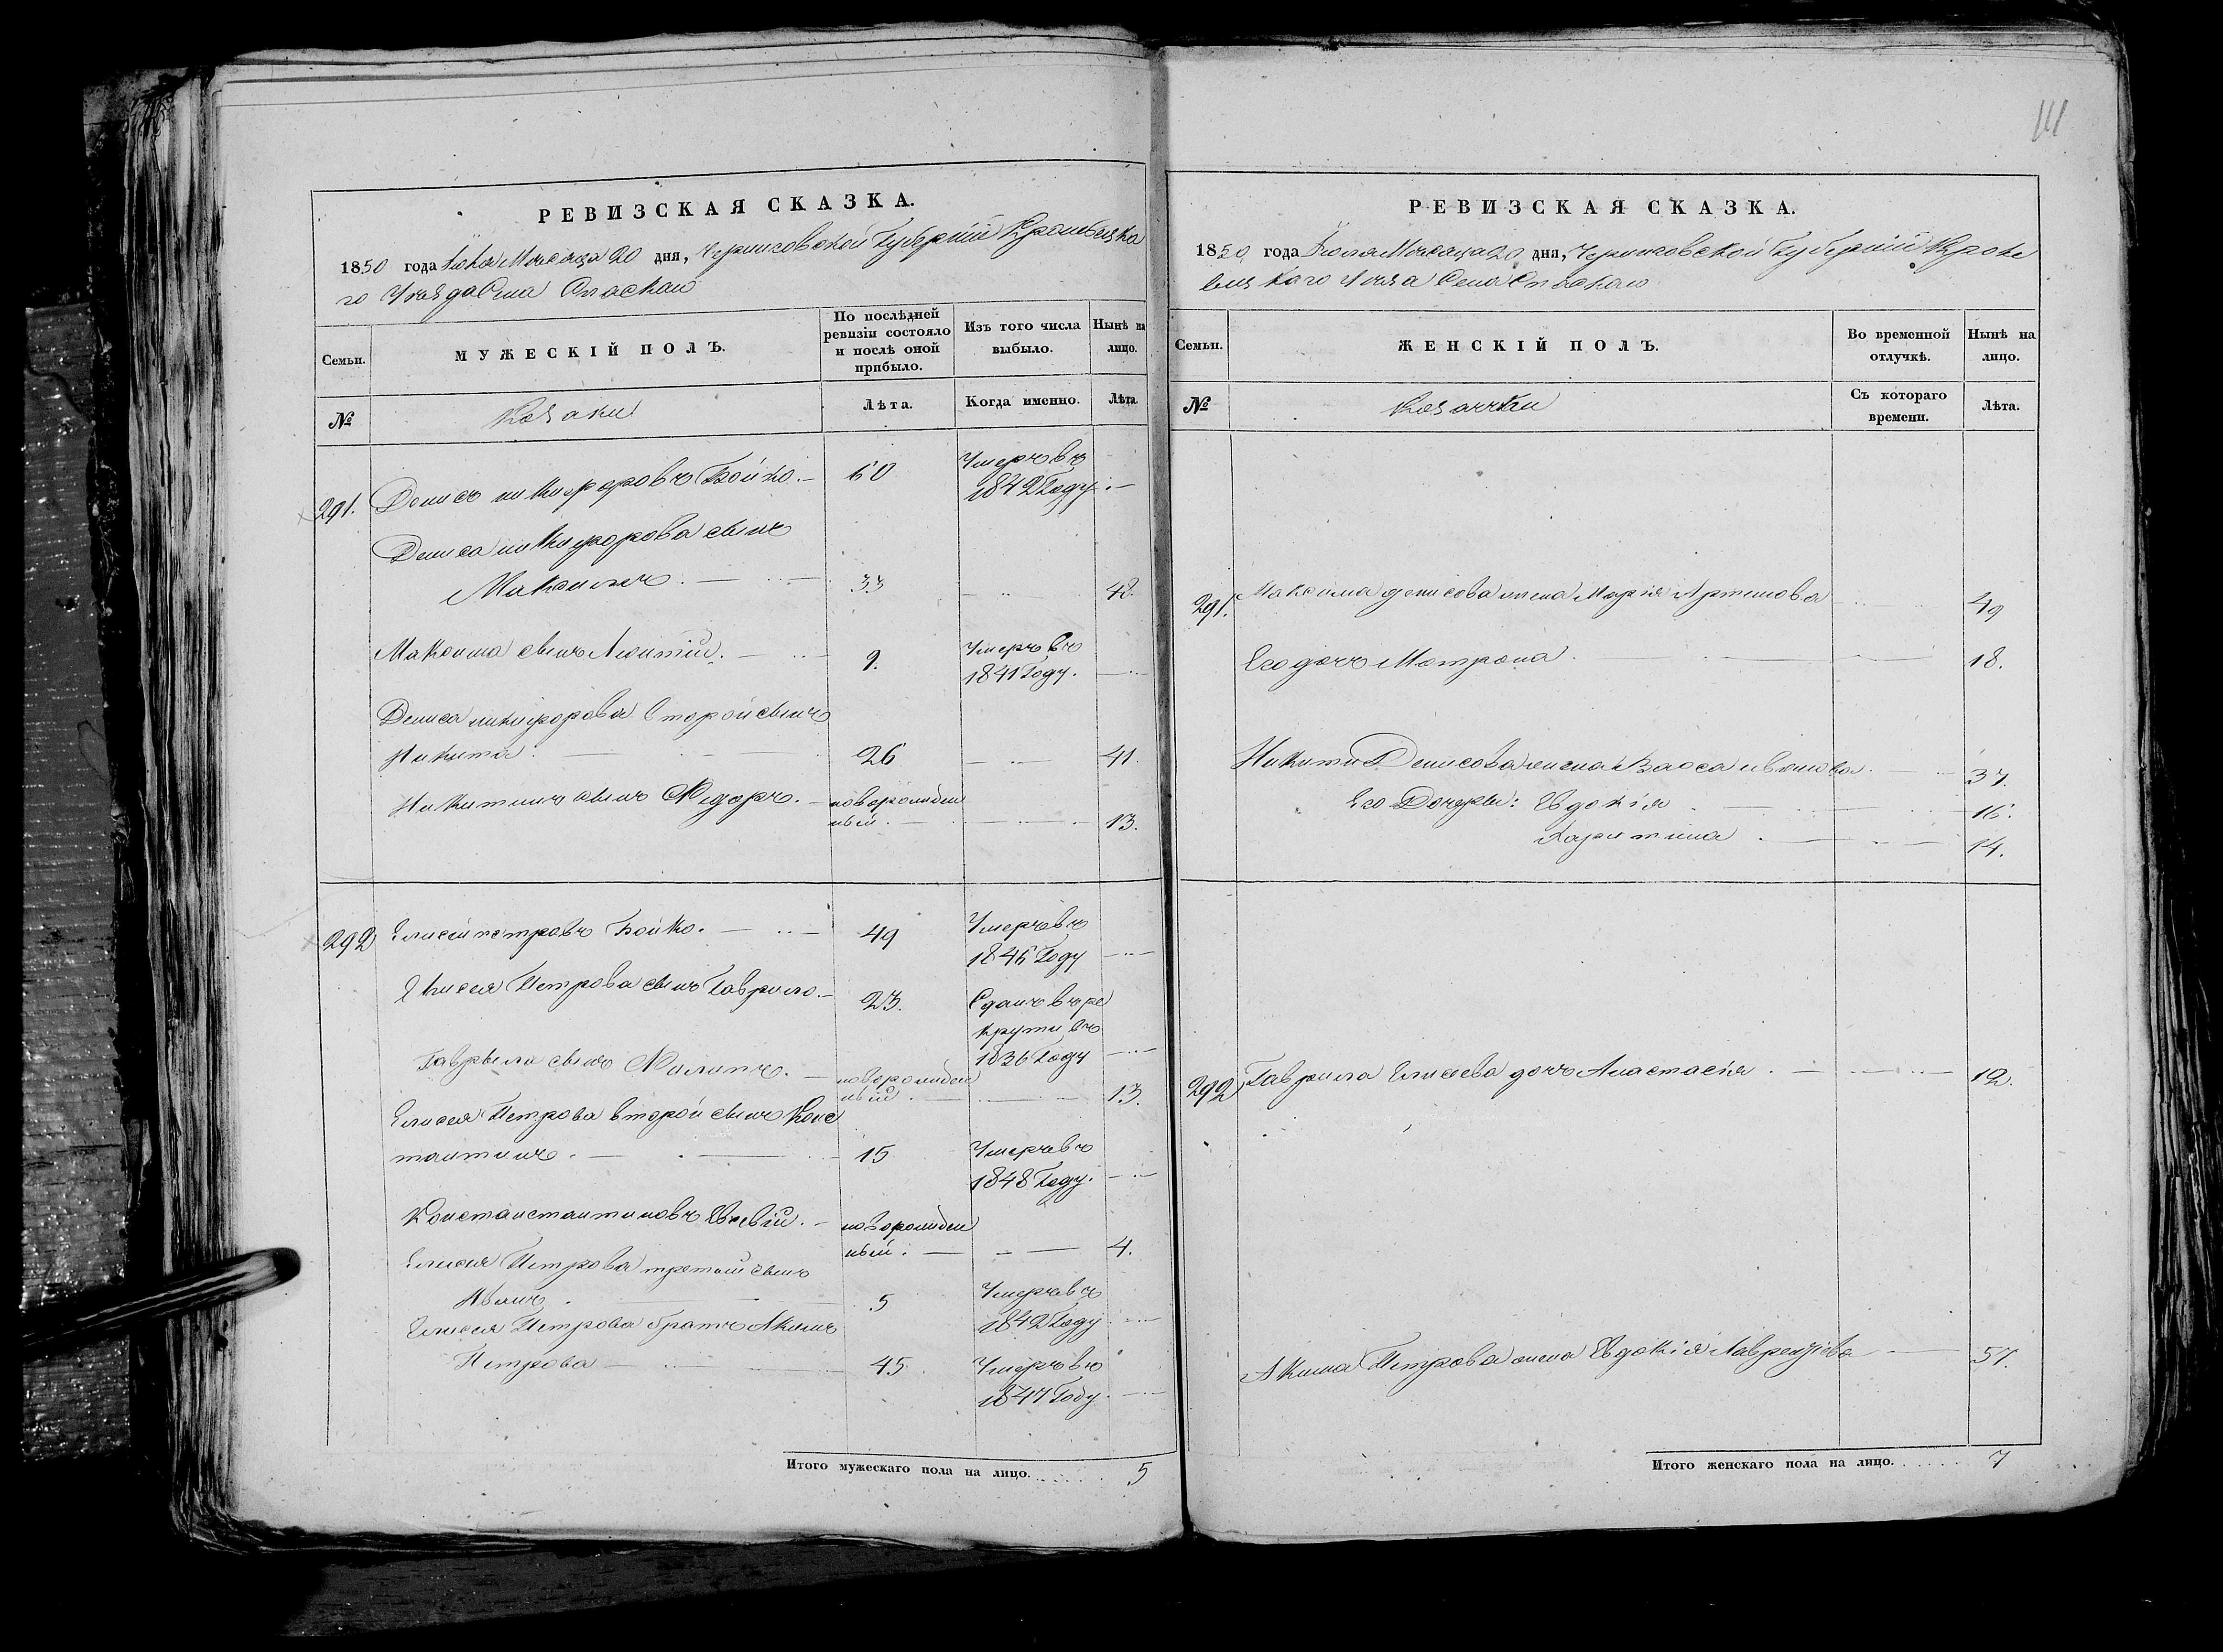 РЕВИЗСКАЯ СКАЗКА.
1850 года Июля Месяца 20 дня, Черниговской Губерніи Кролевецка
го Уезда Села Спаскаго
Семьи.
МУЖЕСКІЙ ПОЛЪ.
По послѣдней ревизіи состояло и послѣ оной прибыло.
Изъ того числа выбыло.
Нынѣ на лицо.
№
Козаки
Лѣта.
Когда именно.
Лѣта.
291. Денисъ никифоровъ Бойко. 60 Умеръ въ
1842 Году.
Дениса никифорова сынъ
Максимъ. 33 48.
Максима сынъ Леонтій. 9. Умеръ въ
1841 Году.
Дениса никифорова второй сынъ
Никита. 26 41.
Никитинъ сынъ Федоръ. новорожден
ный. 13.
292 Елисей петровъ Бойко. 49 Умеръ въ
1846 Году
Елисея Петрова сынъ Гаврило. 23. Сданъ въ ре
круты въ
1836 Году
Гаврыла сынъ Филипъ. новорожден
ный. 13.
Елисея Петрова второй сынъ Конс
тантинъ. 15 Умеръ въ
1848 Году.
Констанстантиновъ Евсевій. новорожден
ный. 4.
Елисея Петрова третый сынъ
Иванъ. 5 Умеръ въ
1842 Году
Елисея Петрова братъ Акимъ
Петрова 45. Умеръ въ
1847 Году.
Итого мужескаго пола на лицо. 5
111
РЕВИЗСКАЯ СКАЗКА.
1850 года Іюля Месяца 20 дня, Черниговской Губерніи Кроле
вецкаго Села Спаскаго
Семьи.
ЖЕНСКІЙ ПОЛЪ.
Во временной отлучкѣ.
Нынѣ на лицо.
№
Козачки
Съ котораго времени.
Лѣта.
291. Максима денисова жена Марія Артемова 49
Его дочъ Мотрона. 18.
Никиты Денисова жена Васса ивanова. 37.
Его Дочеры: Евдокія. 16.
Харитина. 14.
292 Гаврила Елисеева дочъ Анастасія. 12.
Акима Петрова жена Евдокія Лаврентіева 57.
Итого женскаго пола на лицо. 7